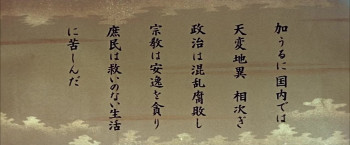 加うるに国内では
天変地異 相次ぎ
政治は混乱腐敗し
宗教は安逸を貪り
庶民は救いのない生活
に苦しんだ